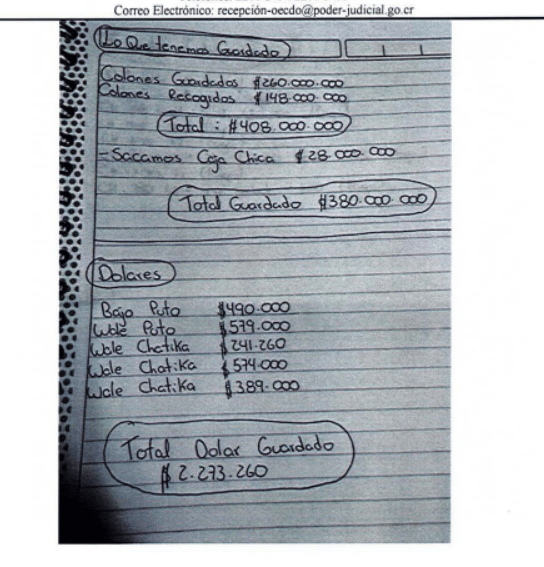 Correo Electrónico: recepción-oecdo@poder-judicial.go.cr
Lo Que tenemos Guardado
Colones Guardados ₡260.000.000
Colones Recogidos ₡148.000.000
Total: ₡408.000.000
=Sacamos Caja Chica ₡28.000.000
Total Guardado ₡380.000.000
Dolares
Bajo Puto $490.000
Wale Puto $579.000
Wale Chatika $241.260
Wale Chatika $574.000
Wale Chatika $389.000
Total Dolar Guardado
$2.273.260